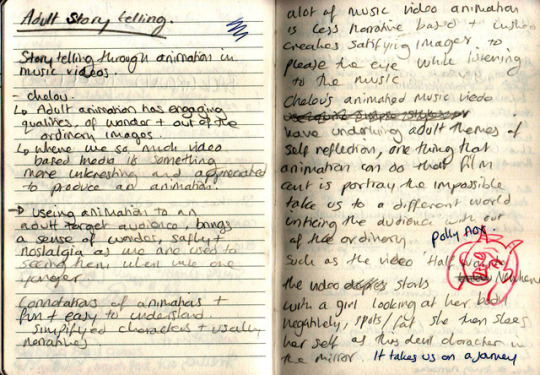 Adult Story telling.
Story telling through animation in
music videos.
- chelou.
↳ Adult animation has engaging
qualities, of wonder + out of the
ordinary images.
↳ where we so much video
based media is something
more interesting and appreciated
to produce an animation.
→ useing animation to an
adult target audience, brings
a sense of wonder, safty +
nostalgia as we are used to
seeing them when we are
younger.
Connotations of animations +
fun + easy to understand
simplifyed characters + usually
narratives.
alot of music video animation
is less narrative based +
creates satifying images, to
please the eye while listening
to the music
Chelous animated music video
have underlying adult themes of
self reflection, one thing that
animation can do that film
cant is portray the impossible
take us to a different world
inticing the audience with out
of the ordinary. Polly Nor.
Such as the video 'Half way to
the video starts
with a girl looking at her body
negitively, spots/fat, she then sees
her self as this devil character in
the mirror. It takes us on a journey